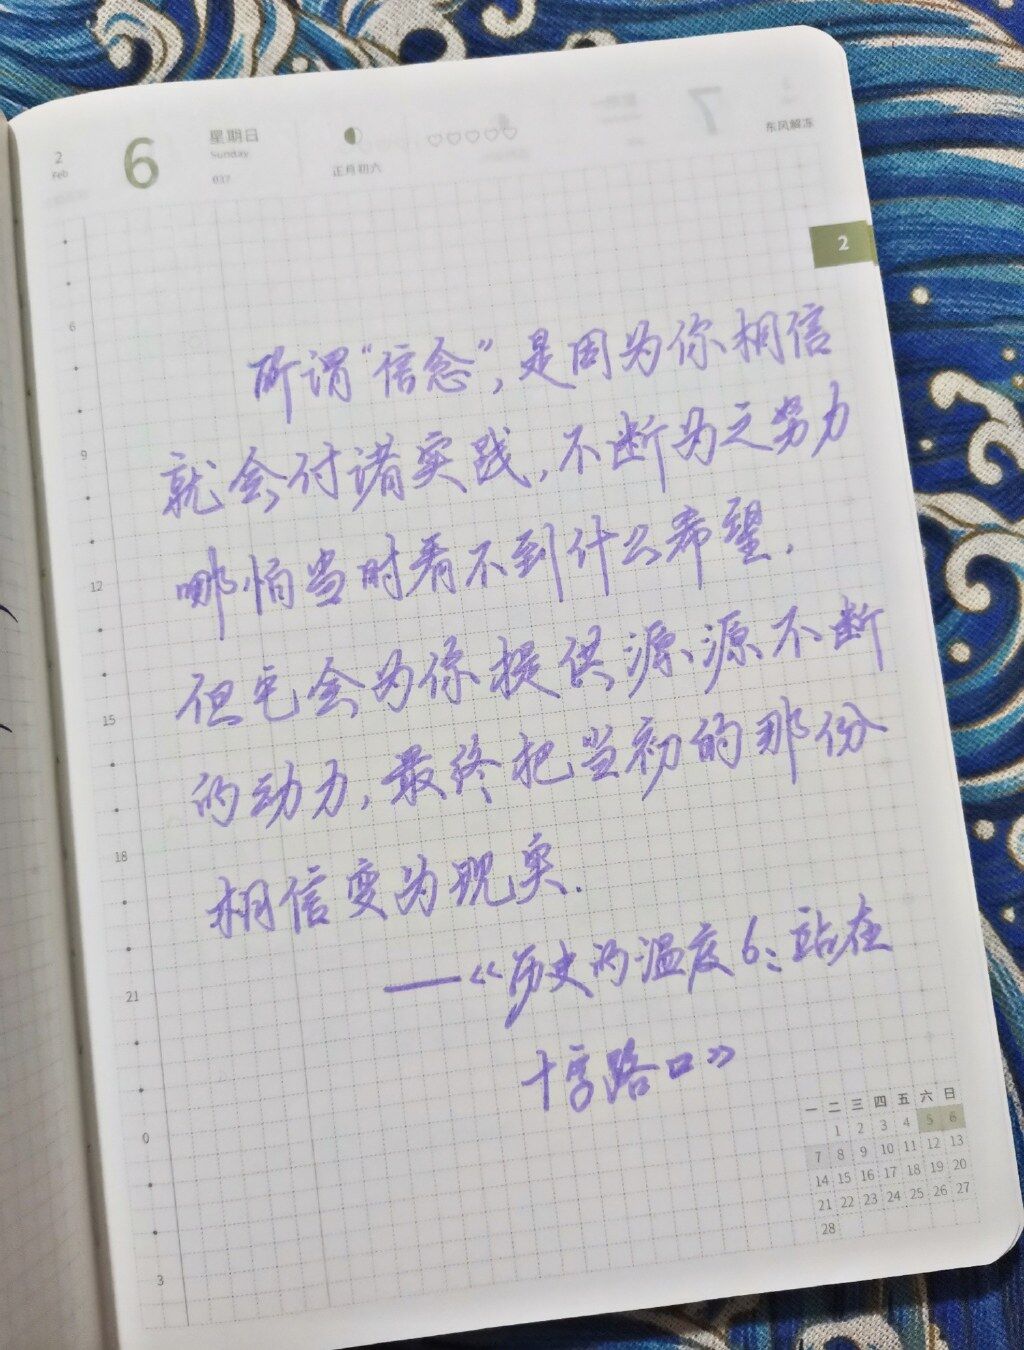 2
Feb
6
星期日
Sunday
037
正月初六
东风解冻
7
2
6
9
12
15
18
21
0
3
所谓“信念”,是因为你相信
就会付诸实践,不断为之努力
哪怕当时看不到什么希望.
但它会为你提供源源不断
的动力,最终把当初的那份
相信变为现实.
——《历史的温度6:站在
十字路口》
一 二 三 四 五 六 日
1 2 3 4 5 6
7 8 9 10 11 12 13
14 15 16 17 18 19 20
21 22 23 24 25 26 27
28